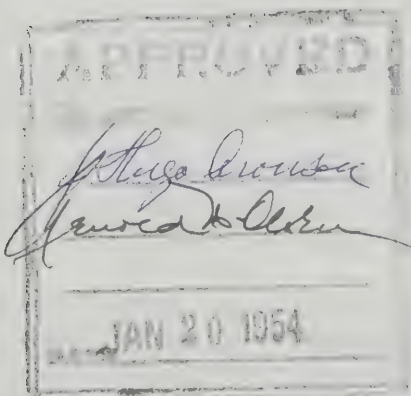 APPROVED
J. Hugo Aronson
Arnold H. Olsen
JAN 20 1954